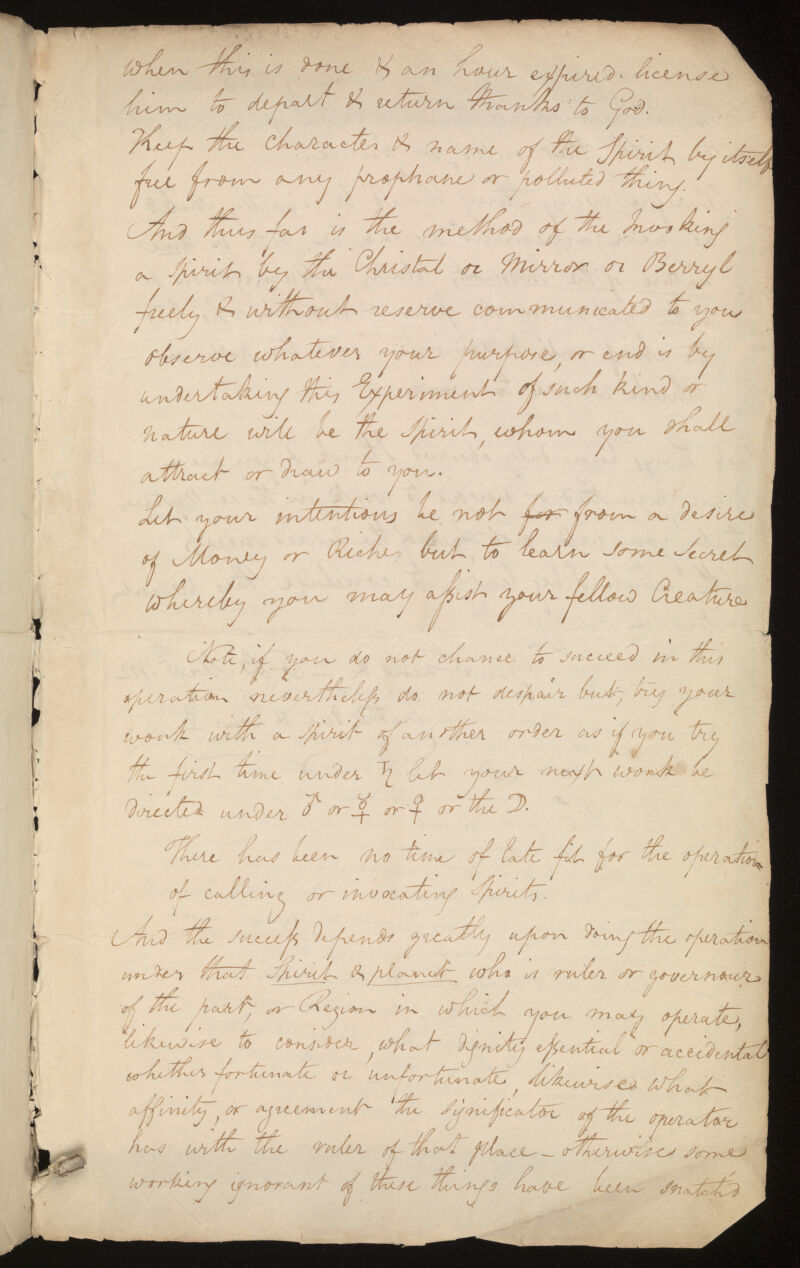 when this is done & an hour expired. license
him to depart & return thanks to God.
Keep the character & name of the Spirit by itself
free from any prophane or polluted thing.
And thus far is the method of the Invoking
a Spirit by the Christal or Mirror or Berryl
freely & without reserve communicated to you
observe whatever your purpose, or end is by
undertaking this Experiment of such kind or
nature will be the Spirit, whom you shall
attract or draw to you.
Let your intentions be not for from a desire
of Money or Riches but to learn some secret
whereby you may assist your fellow Creature
Note, if you do not chance to succeed in this
operation nevertheless do not despair but, try your
work with a spirit of another order as if you try
the first time under ♄ let your next work be
directed under ♂ or ☿ or ♀ or the ☽.
There has been no time of late fit for the operation
of calling or invocating Spirits.
And the success depends greatly upon doing the operation
under that Spirit & planet who is ruler or governour
of the part, or Region in which you may operate,
likewise to consider, what dignity essential or accidental
whether fortunate or unfortunate, likewise what
affinity, or agreement the significator of the operator
has with the ruler of that place – otherwise some
working ignorant of these things have been snatch'd